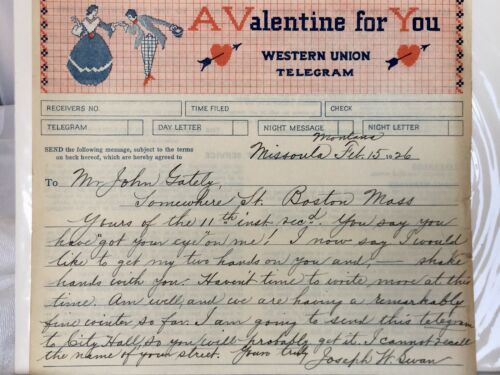 A Valentine for You
WESTERN UNION
TELEGRAM
RECEIVERS NO. TIME FILED CHECK
TELEGRAM DAY LETTER NIGHT MESSAGE NIGHT LETTER
SEND the following message, subject to the terms
on back hereof, which are hereby agreed to
Montana
Missoula Feb. 15, 1926
To Mr. John Gately,
Somewhere St. Boston Mass
Yours of the 11th inst. rec'd. You say you
have "got your eye" on me! I now say I would
like to get my two hands on you and, — shake
hands with you. Haven't time to write more at this
time. Am well, and we are having a remarkably
fine winter so far. I am going to send this telegram
to City Hall, so you will probably get it. I cannot recall
the name of your street. Yours truly Joseph W. Swan